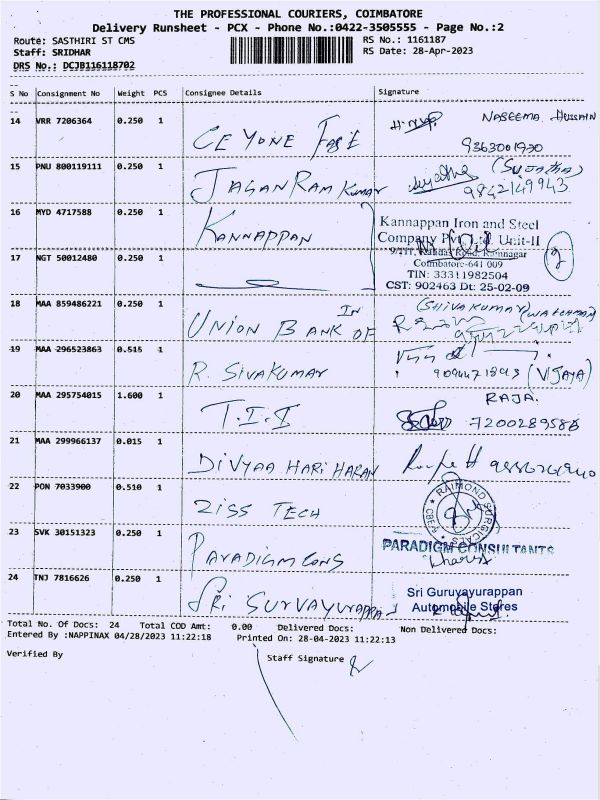 THE PROFESSIONAL COURIERS, COIMBATORE
Delivery Runsheet - PCX - Phone No.:0422-3505555 - Page No.:2
Route: SASTHIRI ST CMS RS No.: 1161187
Staff: SRIDHAR RS Date: 28-Apr-2023
DRS No.: DCJB116118702
S No Consignment No Weight PCS Consignee Details Signature
14 VRR 7206364 0.250 1 NASEEMA HUSSAIN
CEYONE 9363001920
15 PNU 800119111 0.250 1 (SUJATHA)
JAGAN RAM KUMAR 9842149943
16 MYD 4717588 0.250 1 KANNAPPAN
Kannappan Iron and Steel
Company Pvt. Ltd. Unit-II
17 NGT 50012480 0.250 1
Road, Ramnagar
Coimbatore-641 009
TIN: 33311982504
CST: 902463 Dt: 25-02-09
2
18 MAA 859486221 0.250 1 (SHIVAKUMAR) (WATCHMAN)
UNION BANK OF IN
19 MAA 296523863 0.515 1
R. SIVAKUMAR (VIJAYA)
20 MAA 295754015 1.600 1 RAJA.
T.I.I 7200289588
21 MAA 299966137 0.015 1
DIVYAA HARI HARAN
22 PON 7033900 0.510 1
ZISS TECH
RAIMOND SURGICALS CBE
23 SVK 30151323 0.250 1
PARADIGM CONS
PARADIGM CONSULTANTS
24 TNJ 7816626 0.250 1
SRI GURVAYURAPPA
Sri Guruvayurappan
Automobile Stores
Total No. Of Docs: 24 Total COD Amt: 0.00 Delivered Docs: Non Delivered Docs:
Entered By :NAPPINAX 04/28/2023 11:22:18 Printed On: 28-04-2023 11:22:13
Verified By Staff Signature